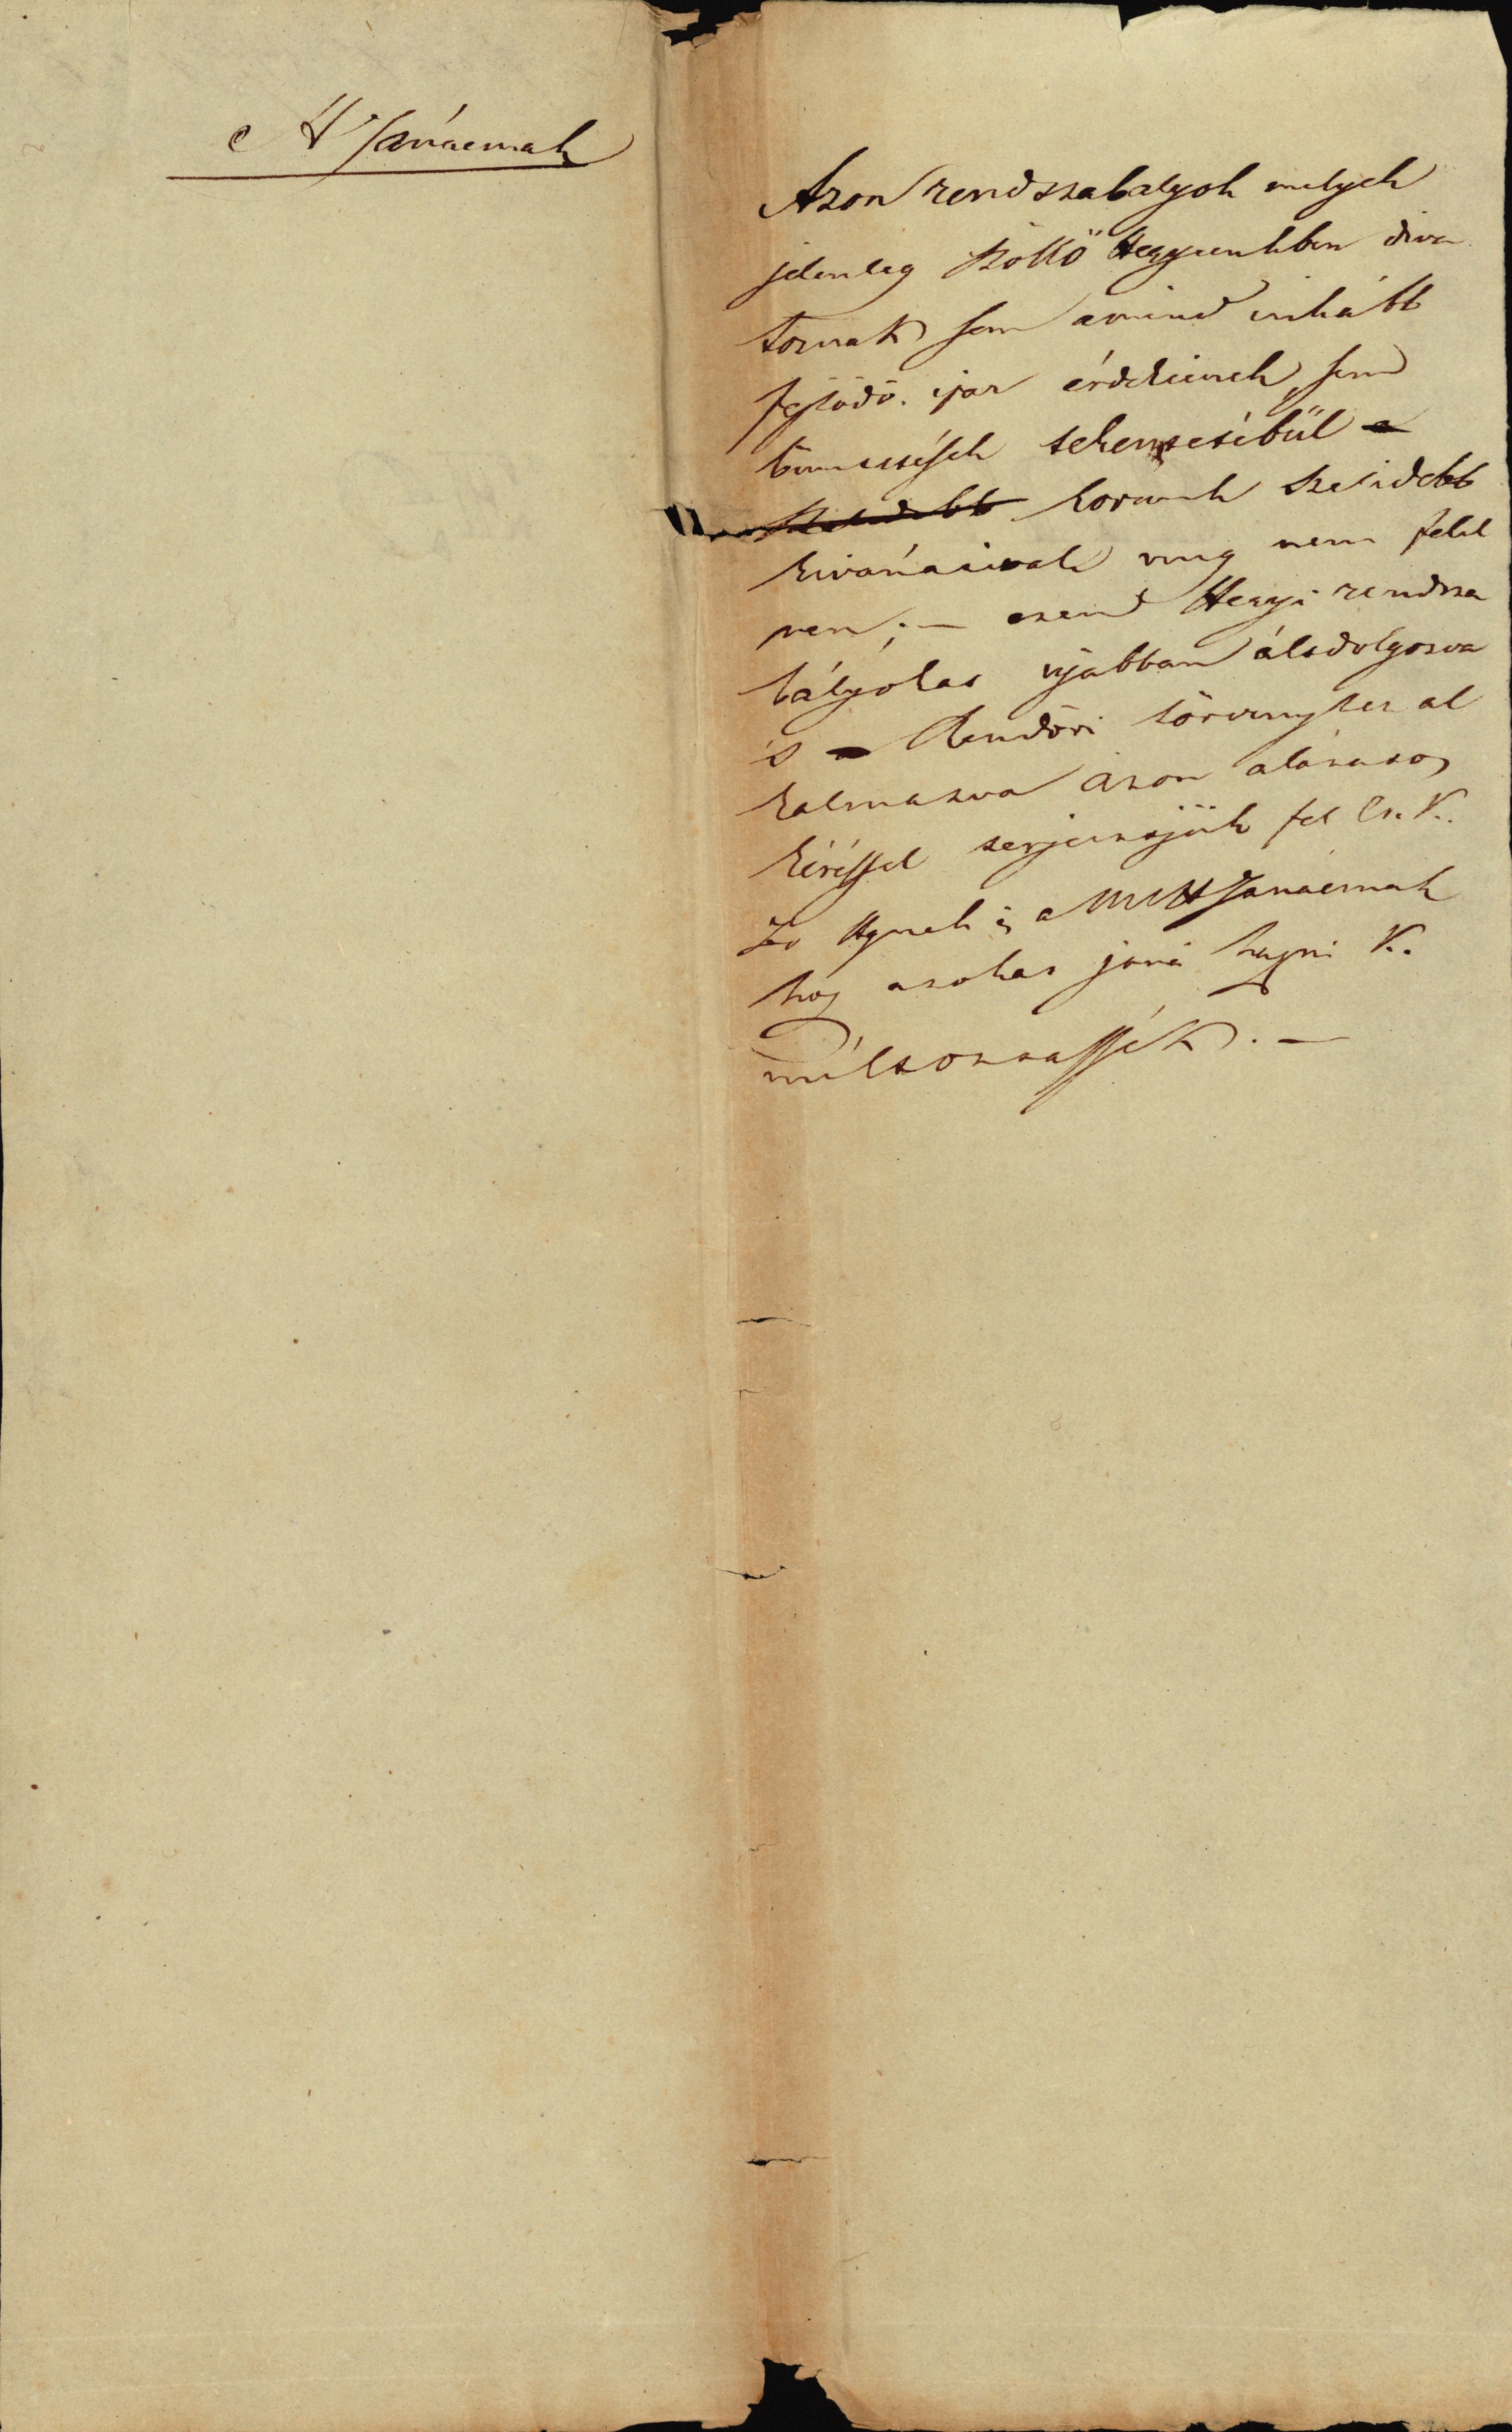 A H Tanácsnak
Azon rendszabalyok melyek
jelenleg Szöllő Hegyeinkben diva
toznak sem a mind inkább
fejlödö ipar érdekeinek, sem
büntetések tekentetéből a
szelidebb korunk szelidebb
kivánatinak meg nem felel
nen; — ezen Hegyi rendsza
bályokat ujabban átdolgozva
's a Rendőri törvényhez al
kalmazva azon alázatos
kéréssel terjesztjük fel Cs. K.
Hgnek és a MH Tanácsnak
hogy azokat jová hagyni K.
méltóztassék. —